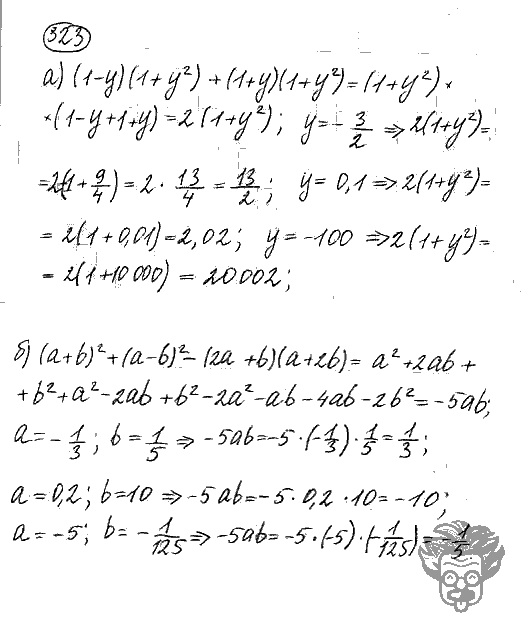 323
а) (1-y)(1+y²) + (1+y)(1+y²) = (1+y²) ×
×(1-y+1+y) = 2(1+y²); y = -3/2 ⇒ 2(1+y²) =
= 2(1+9/4) = 2 · 13/4 = 13/2; y = 0,1 ⇒ 2(1+y²) =
= 2(1+0,01) = 2,02; y = -100 ⇒ 2(1+y²) =
= 2(1+10 000) = 20002;
б) (a+b)² + (a-b)² - (2a+b)(a+2b) = a² + 2ab +
+ b² + a² - 2ab + b² - 2a² - ab - 4ab - 2b² = -5ab;
a = -1/3; b = 1/5 ⇒ -5ab = -5 · (-1/3) · 1/5 = 1/3;
a = 0,2; b = 10 ⇒ -5ab = -5 · 0,2 · 10 = -10;
a = -5; b = -1/125 ⇒ -5ab = -5 · (-5) · (-1/125) = -1/5